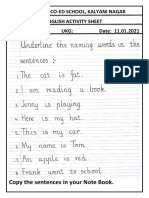 CO-ED SCHOOL, KALYANI NAGAR
ENGLISH ACTIVITY SHEET
UKG: Date: 11.01.2021
Underline the naming words in the
sentences :-
1. The cat is fat.
2. I am reading a book.
3. Jenny is playing.
4. Here is my hat.
5. This is my car.
6. My name is Tom.
7. An apple is red.
8. Frank went to school.
Copy the sentences in your Note Book.